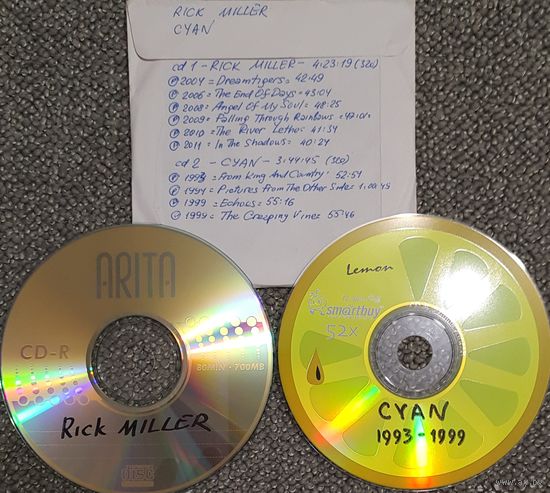 RICK MILLER
CYAN
cd 1 - RICK MILLER - 4:23:19 (320)
Ⓟ 2004 = Dreamtigers = 42:49
Ⓟ 2006 = The End Of Days = 43:04
Ⓟ 2008 = Angel Of My Soul = 48:25
Ⓟ 2009 = Falling Through Rainbows =
Ⓟ 2010 = The River Lethe = 41:34
Ⓟ 2011 = In The Shadows = 40:24
cd 2 - CYAN - 3:44:45 (320)
Ⓟ 1993 = From King And Country = 52:51
Ⓟ 1994 = Pictures From The Other Side = 1:00:45
Ⓟ 1999 = Echoes = 55:16
Ⓟ 1999 = The Creeping Vine = 55:46
ARITA
CD-R
80MIN · 700MB
Rick MILLER
COMPACT
disc
Lemon
smartbuy
52x
CYAN
1993-1999